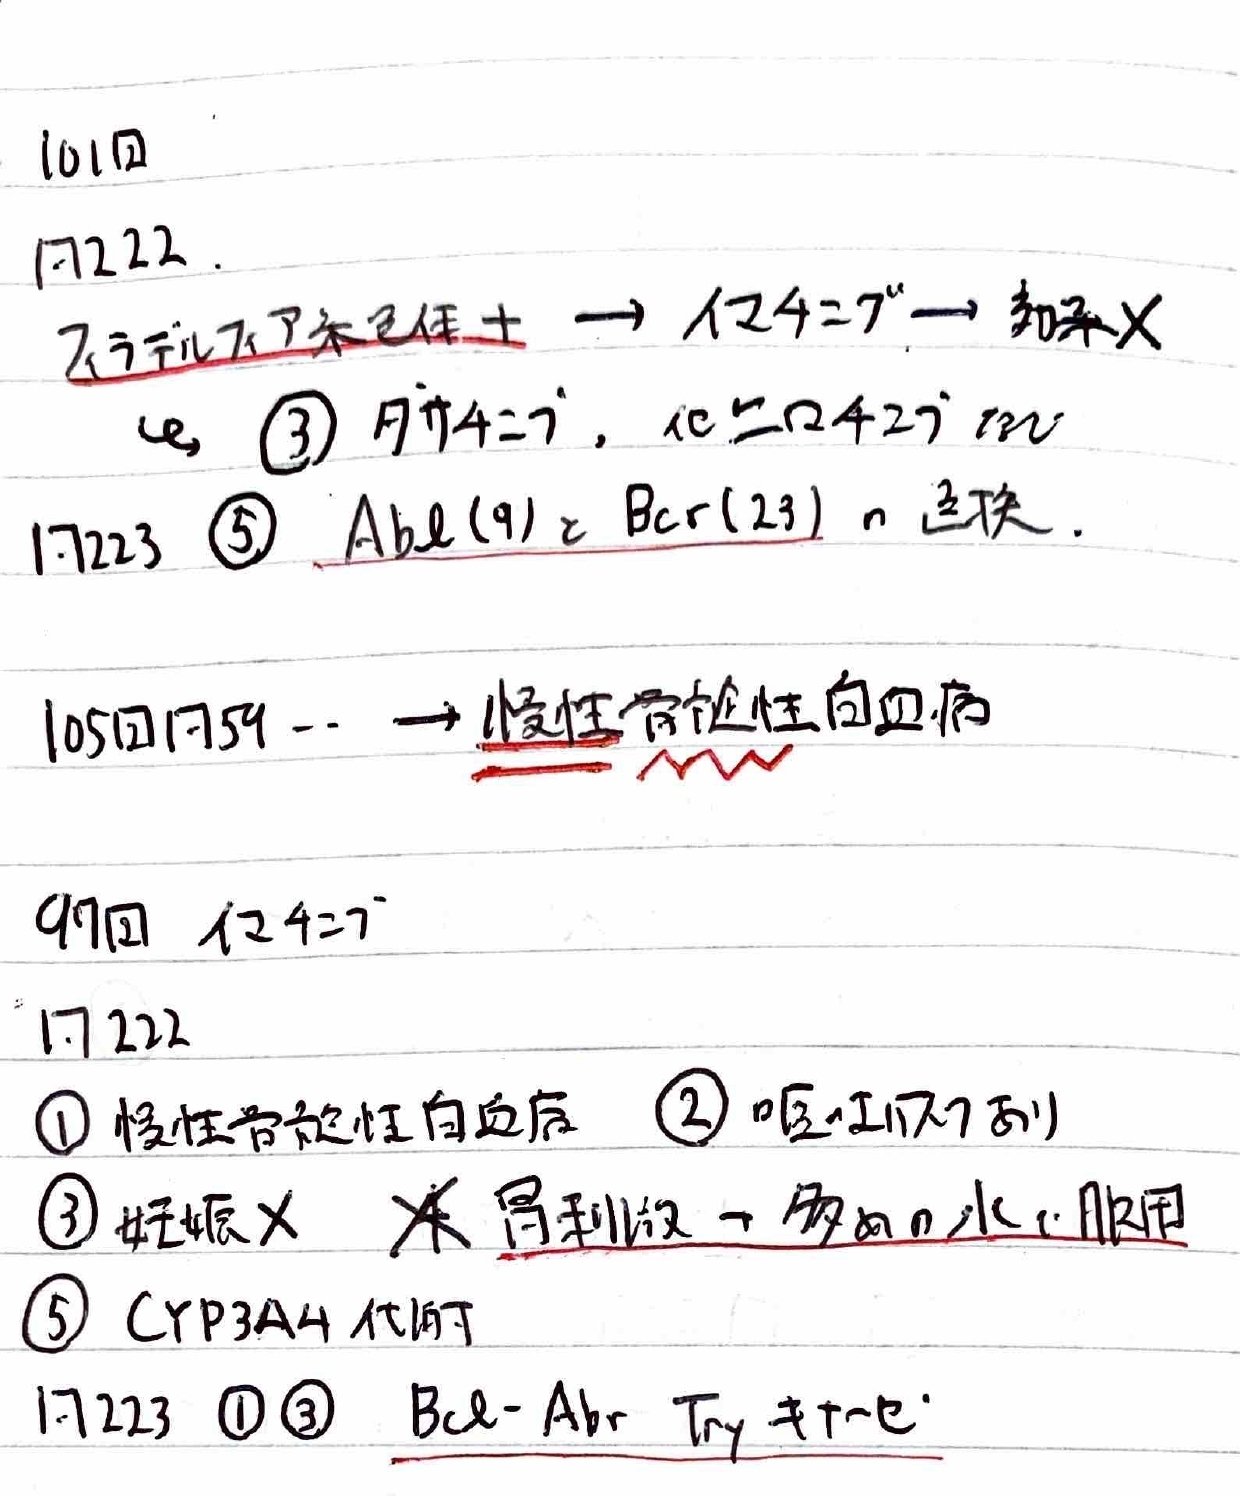 101回
問222.
フィラデルフィア染色体+ → イマチニブ → 効果×
↳ ③ ダサチニブ, ニロチニブ
問223 ⑤ Abl(9)と Bcr(23) の 置換.
105回問59 -- → 慢性骨髄性白血病
97回 イマチニブ
問222
① 慢性骨髄性白血病 ② 嘔吐リスクあり
③ 妊娠× ※ 胃刺激 → 多めの水で服用
⑤ CYP3A4 代謝
問223 ①③ Bcl-Abr Try キナーゼ